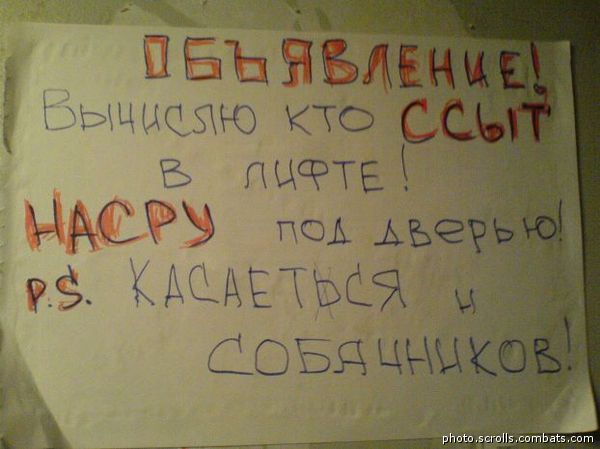 ОБЪЯВЛЕНИЕ!
ВЫЧИСЛЮ КТО ССЫТ
В ЛИФТЕ!
НАСРУ ПОД ДВЕРЬЮ!
P.S. КАСАЕТЬСЯ И
СОБАЧНИКОВ!
photo.scrolls.combats.com